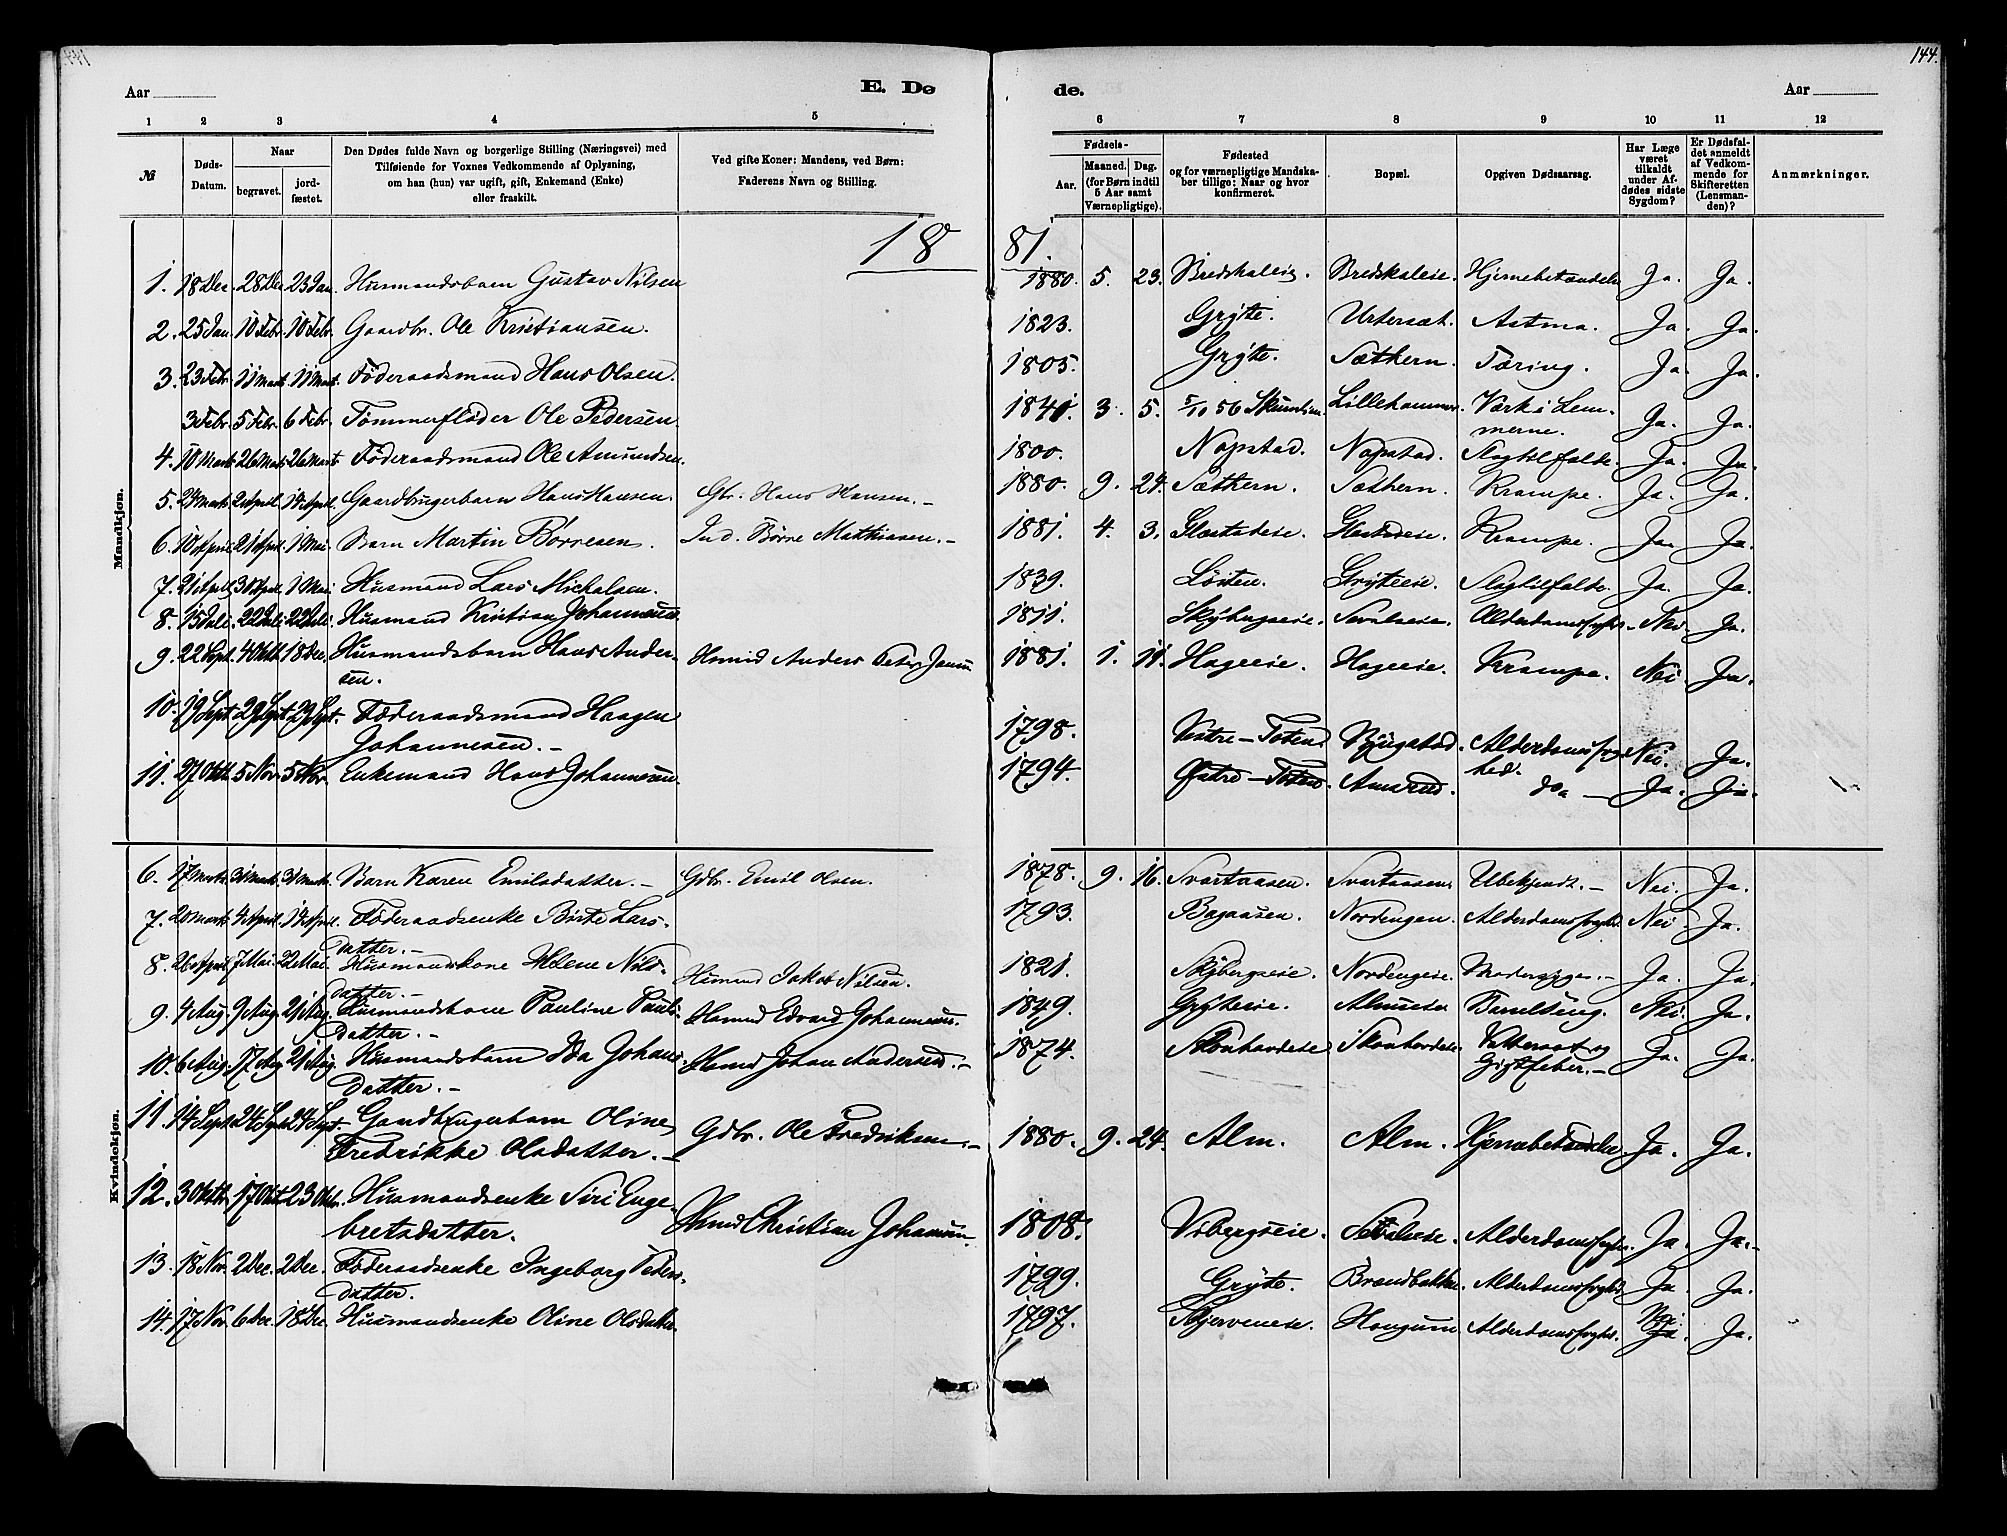 144.
Aar
E. Dø
de.
Aar
1 2 3 4 5 6 7 8 9 10 11 12
№
Døds-Datum.
Naar
begravet.
jord-fæstet.
Den Dødes fulde Navn og borgerlige Stilling (Næringsvei) med
Tilføiende for Voxnes Vedkommende af Oplysning,
om han (hun) var ugift, gift, Enkemand (Enke)
eller fraskilt.
Ved gifte Koner: Mandens, ved Børn:
Faderens Navn og Stilling.
Fødsels-
Aar.
Maaned. Dag.
(for Børn indtil
5 Aar samt
Værnepligtige).
Fødested
og for værnepligtige Mandska-
ber tillige: Naar og hvor
konfirmeret.
Bopæl.
Opgiven Dødsaarsag.
Har Læge
været
tilkaldt
under Af-
dødes sidste
Sygdom?
Er Dødsfal-
det anmeldt
af Vedkom-
mende for
Skifteretten
(Lensman-
den)?
Anmærkninger.
1881.
Mandkjøn.
1. 18 Dec. 28 Dec. 23 Jan. Husmandsbarn Gustav Nilsen 1880. 5. 23. Bredskaleie. Bredskaleie. Ja. Ja.
2. 25 Jan. 10 Febr. 10 Febr. Gaardbr. Ole Kristiansen. 1823. Grȳte. Astma. Ja. Ja.
3. 23 Febr. 11 Mart. 11 Mart. Föderaadsmand Hans Olsen. 1805. Grȳte. Sæthern. Tæring. Ja. Ja.
3 Febr. 5 Febr. 6 Febr. Tömmerfløder Ole Pedersen. 1841. 3. 5. 5/10 56 Lillehammer. Værk i Lem-
merne. Ja. Ja.
4. 10 Marts 26 Marts 26 Marts Föderaadsmand Ole Amundsen. 1800. Nøpstad. Nøpstad. Slagtilfælde. Ja. Ja.
5. 24 Marts 2 April 14 April. Gaardbrugerbarn Hans Hansen. Gbr. Hans Hansen. – 1880. 9. 24. Sæthern. Sæthern. Krampe. Ja. Ja.
6. 10 April 21 April 1 Mai. Barn Martin Börresen. Ind. Börre Mathiasen. – 1881. 4. 3. Glæstadeie. Glæstadeie. Krampe. Ja. Ja.
7. 21 April 30 April. 1 Mai. Husmand Lars Michalsen. 1839. Löiten. Grȳteeie. Slagtilfælde. Ja. Ja.
8. 15 Juli. 22 Juli. 22 Juli. Husmand Kristian Johannesen 1811. Sevaleeie. Nei Ja.
9. 22 Sept. 4 Okth. 18 Dec. Husmandsbarn Hans Ander-
sen. Hsmd Anders 1881. 1. 11. Hageeie. Hageeie. Krampe. Nei. Ja.
10. 19 Sept. 29 Sept. 29 Sept. Föderaadsmand Haagen
Johannesen. – 1798. Vestre – Toten. Alderdomssvag-
hed. Nei. Ja.
11. 27 Okth. 5 Nov. 5 Nov. Enkemand Hans Johannesen. 1794. Østre – Toten. Amsrud. do – Ja. Ja.
Kvindekjøn.
6. 17 Marts. 31 Marts. 31 Marts. Barn Karen Emilsdatter. – Gdbr. Emil Olsen. 1878. 9. 16. Svartaasen. Svartaasen. Ubekjendt. – Nei. Ja.
7. 20 Marts 4 April 14 April. Föderaadsenke Birte Lars-
datter. – 1793. Bagaasen. Nordengen. Nei. Ja.
8. 26 April 7 Mai. 22 Mai. Husmandskone Helene Nils-
datter. – Husmd Jakob Nilsen. 1821. Skȳbergseie. Nordengeie. Ja. Ja.
9. 4 Aug. 9 Aug. 21 Aug. Husmandskone Pauline Pauls-
datter. – Husmd Edvard Johannesen. 1849. Grȳteeie. Almseie Barselseng. Nei. Ja.
10. 6 Aug. 17 Aug. 21 Aug. Husmandsbarn Ida Johans-
datter. – Husmd Johan Andersen. – 1874. Vattersot og
Gigtfeber. – Ja. Ja.
11. 14 Sept. 24 Sept. 24 Sept. Gaardbrugerbarn Oline
Fredrikke Olsdatter. – Gdbr. Ole Fredriksen. – 1880. 9. 24. Alm. Alm. Hjernebetændelse Ja. Ja.
12. 3 Okth. 17 Okt. 23 Okt. Husmandsenke Siri Enge-
bretsdatter. Hsmd Christian Johannesen. 1808. Vibergseie. Sevaleeie. Ja. Ja. –
13. 18 Nov. 2 Dec. 2 Dec. Föderaadsenke Ingeborg Peders-
datter. 1799. Grȳte. Brændbakken. Ja. Ja.
14. 17 Nov. 6 Dec. 18 Dec. Husmandsenke Oline Olsdatter. 1797. Skjerveneie. Haugum Nei. Ja. Ja.